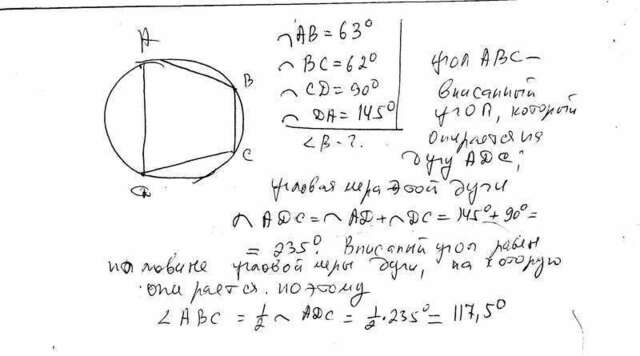 A
B
C
D
◡AB = 63°
◡BC = 62°
◡CD = 90°
◡DA = 145°
∠B - ?
угол ABC –
вписанный
угол, который
опирается на
дугу ADC;
угловая мера этой дуги
◡ADC = ◡AD + ◡DC = 145° + 90° =
= 235°. Вписанный угол равен
половине угловой меры дуги, на которую
опирается. поэтому
∠ABC = 1/2 ◡ADC = 1/2 · 235° = 117,5°